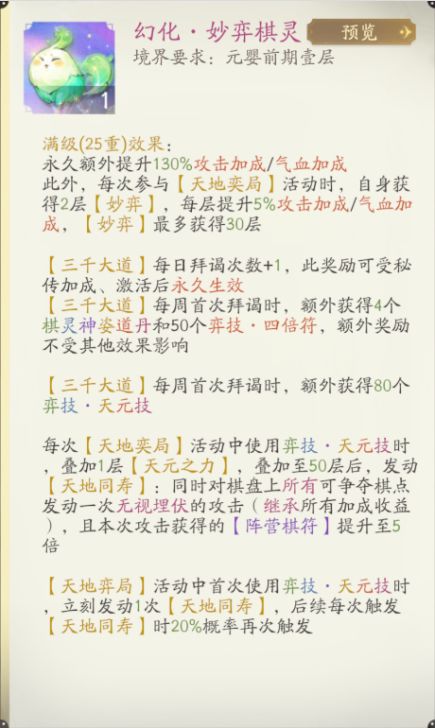 幻化·妙弈棋灵
预览
境界要求：元婴前期壹层
1
满级(25重)效果：
永久额外提升130%攻击加成/气血加成
此外，每次参与【天地奕局】活动时，自身获
得2层【妙弈】，每层提升5%攻击加成/气血加
成，【妙弈】最多获得30层
【三千大道】每日拜谒次数+1，此奖励可受秘
传加成、激活后永久生效
【三千大道】每周首次拜谒时，额外获得4个
棋灵神姿道丹和50个弈技·四倍符，额外奖励
不受其他效果影响
【三千大道】每周首次拜谒时，额外获得80个
弈技·天元技
每次【天地奕局】活动中使用弈技·天元技时
，叠加1层【天元之力】，叠加至50层后，发动
【天地同寿】：同时对棋盘上所有可争夺棋点
发动一次无视埋伏的攻击（继承所有加成收益
），且本次攻击获得的【阵营棋符】提升至5
倍
【天地弈局】活动中首次使用弈技·天元技时
，立刻发动1次【天地同寿】，后续每次触发
【天地同寿】时20%概率再次触发